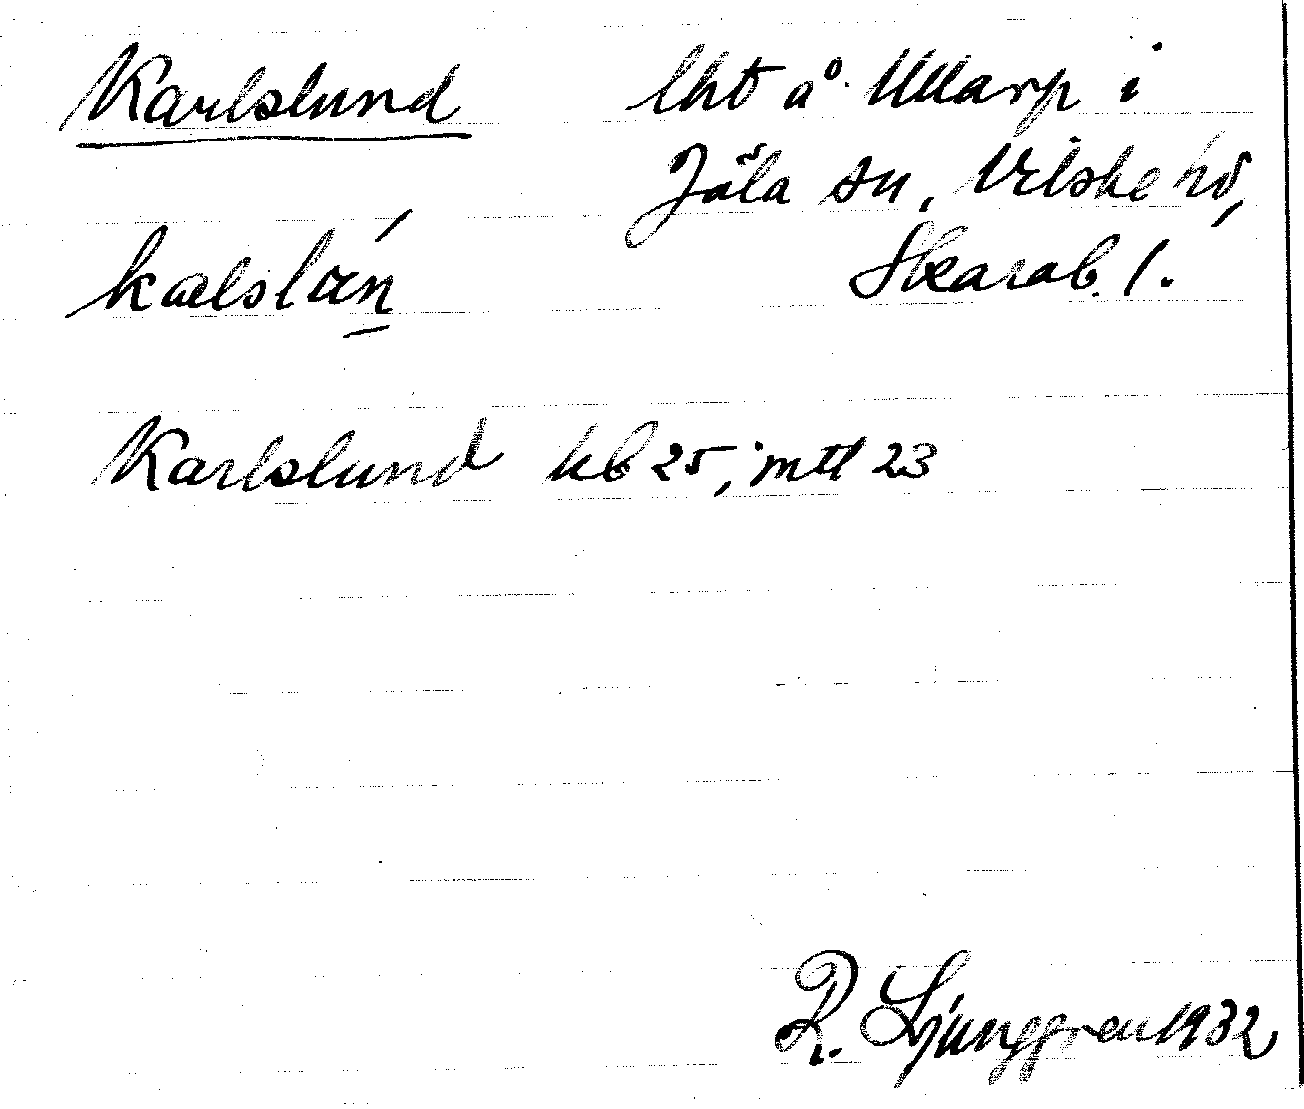 Karlslund lht å Ullarp i
Jäla sn, Vilske hd,
kaɐlslɑ́n Skarab. l.
Karlslund kb 25, mtl 23
R. Ljunggren 1932